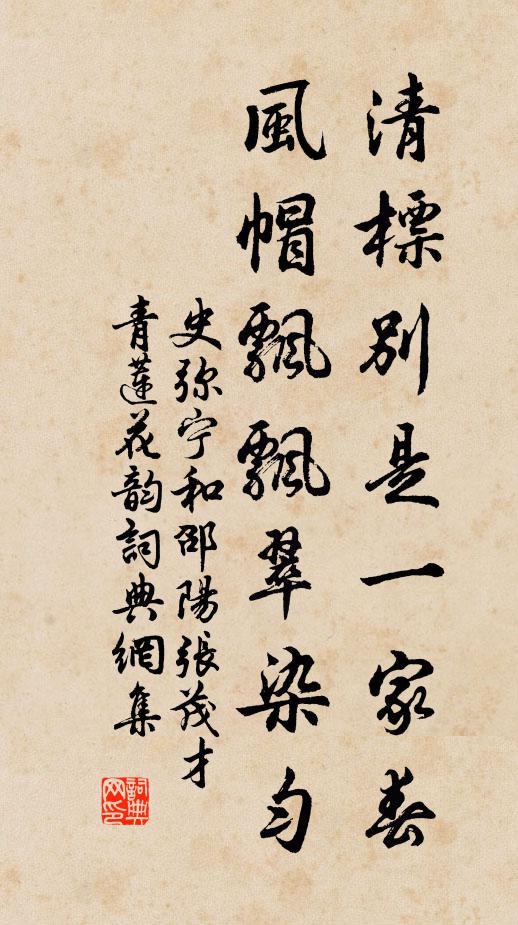 清標別是一家春
風帽飄飄翠染勻
史弥宁和邵陽張茂才
青蓮花韵詞典網集
詞典
网印